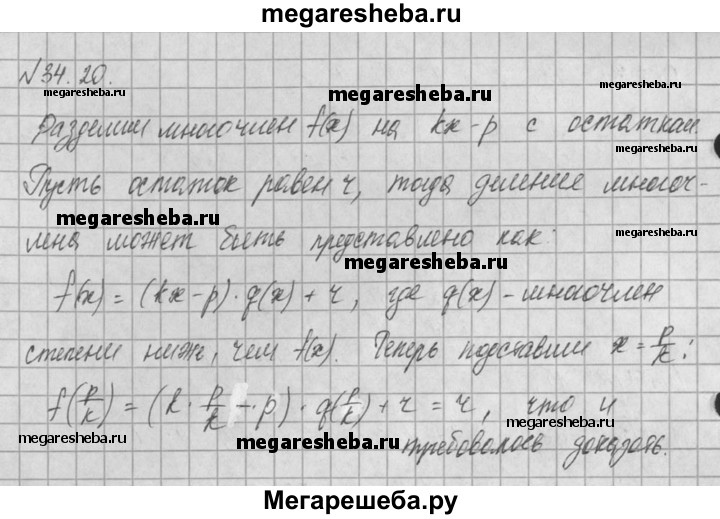 megaresheba.ru
№34.20.
megaresheba.ru megaresheba.ru megaresheba.ru
Разделим многочлен f(x) на kx-p с остатком.
megaresheba.ru
Пусть остаток равен r, тогда деление многоч-
megaresheba.ru
лена может быть представлено как:
megaresheba.ru megaresheba.ru
f(x) = (kx-p)·q(x) + r, где q(x) - многочлен
степени ниже, чем f(x). Теперь подставим x = p/k:
megaresheba.ru megaresheba.ru
f(p/k) = (k · p/k - p) · q(p/k) + r = r, что и
megaresheba.ru megaresheba.ru
требовалось доказать.
megaresheba.ru megaresheba.ru
Мегарешеба.ру